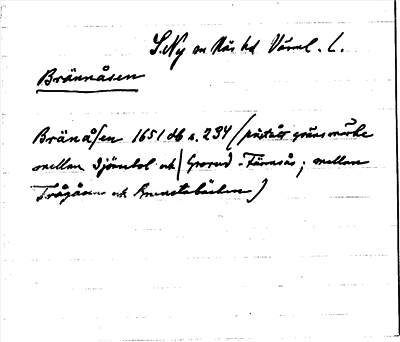 S. Ny sn Näs hd Värml. l.
Brännåsen
Bränåsen 1651 db s. 234 (påstår gränsmärke
mellan Djömbol och Grorud - Tärnsås; mellan
Trågåsen och Brunstabäcken)